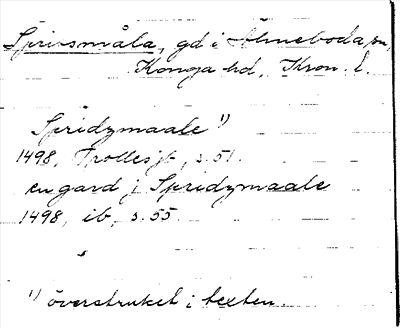 Sprivsmåla, gd i Älmeboda sn,
Konga hd, Kron. l.
Spridzmaale ¹)
1498, Trolles jb, s. 51.
en gard j Spridzmaale
1498, ib, s. 55
¹) överstruket i texten.